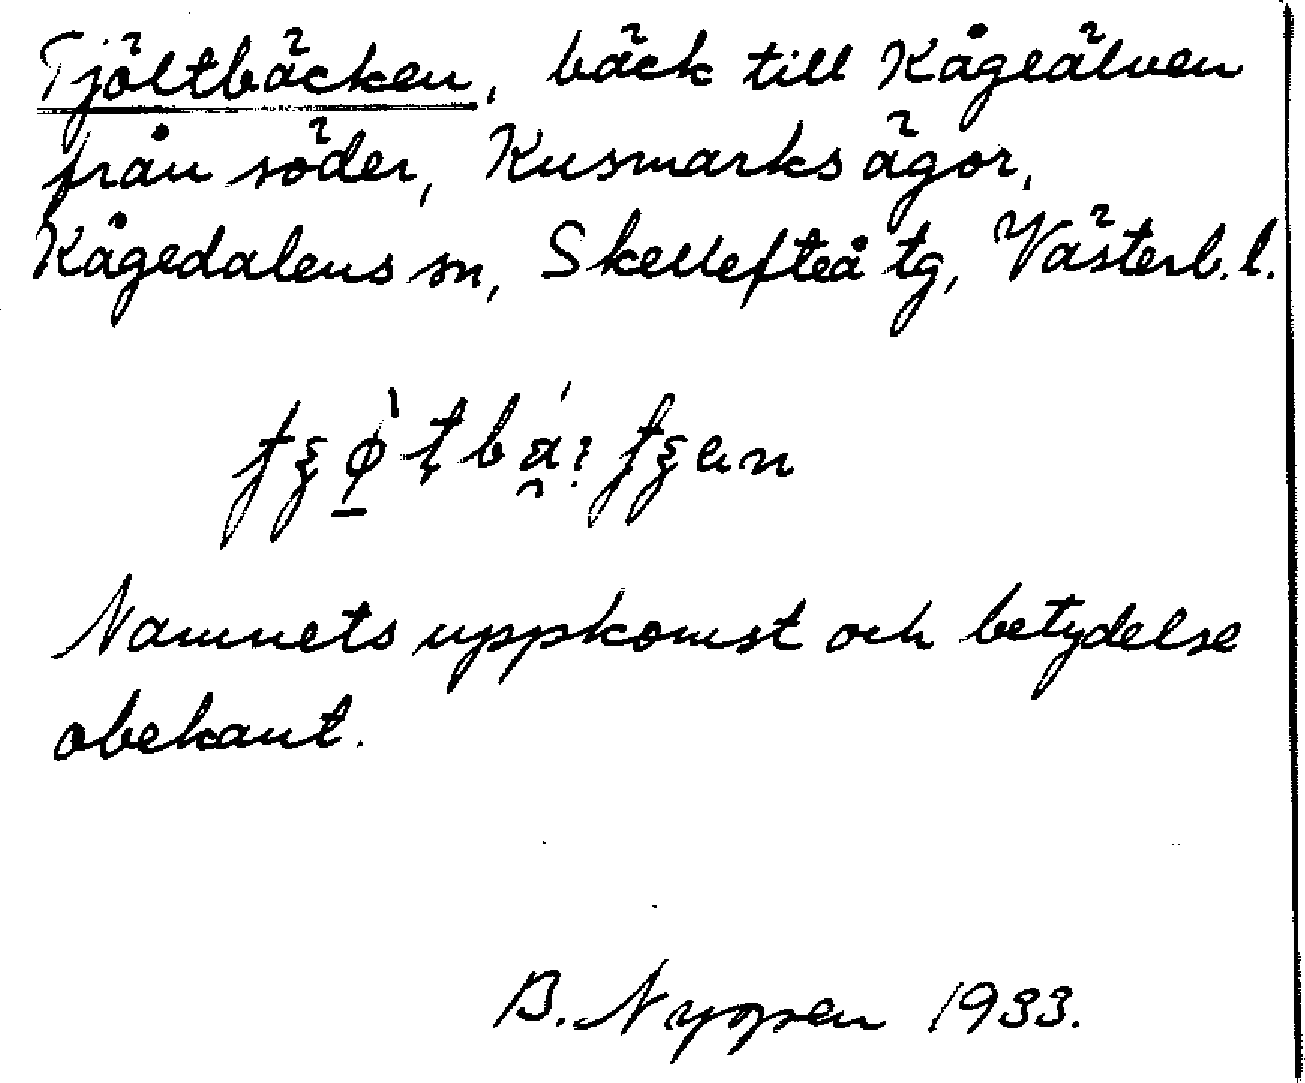 Tjöltbäcken, bäck till Kågeälven
från söder, Kusmarks ägor,
Kågedalens sn, Skellefteå tg, Västerb. l.
Namnets uppkomst och betydelse
obekant.
B. Nyopen 1933.